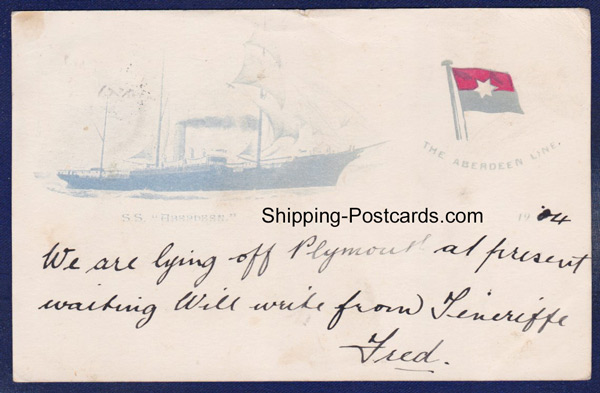 THE ABERDEEN LINE.
S.S. "ABERDEEN."
Shipping-Postcards.com
19 04
We are lying off Plymouth at present
waiting Will write from Teneriffe
Fred.